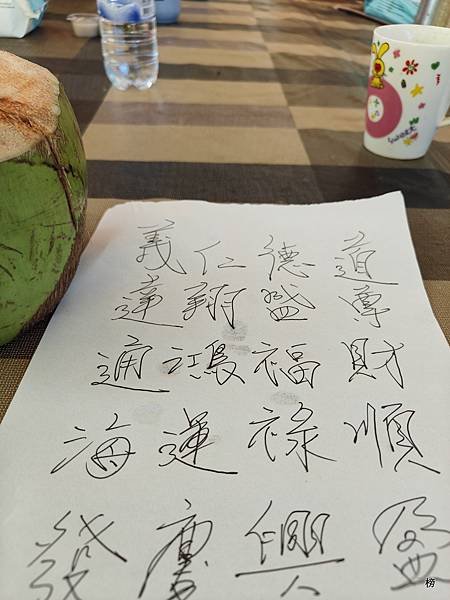 道尊財順盈
德盛福祿興
仁翔鴻運慶
義達通海發
sweet
榜